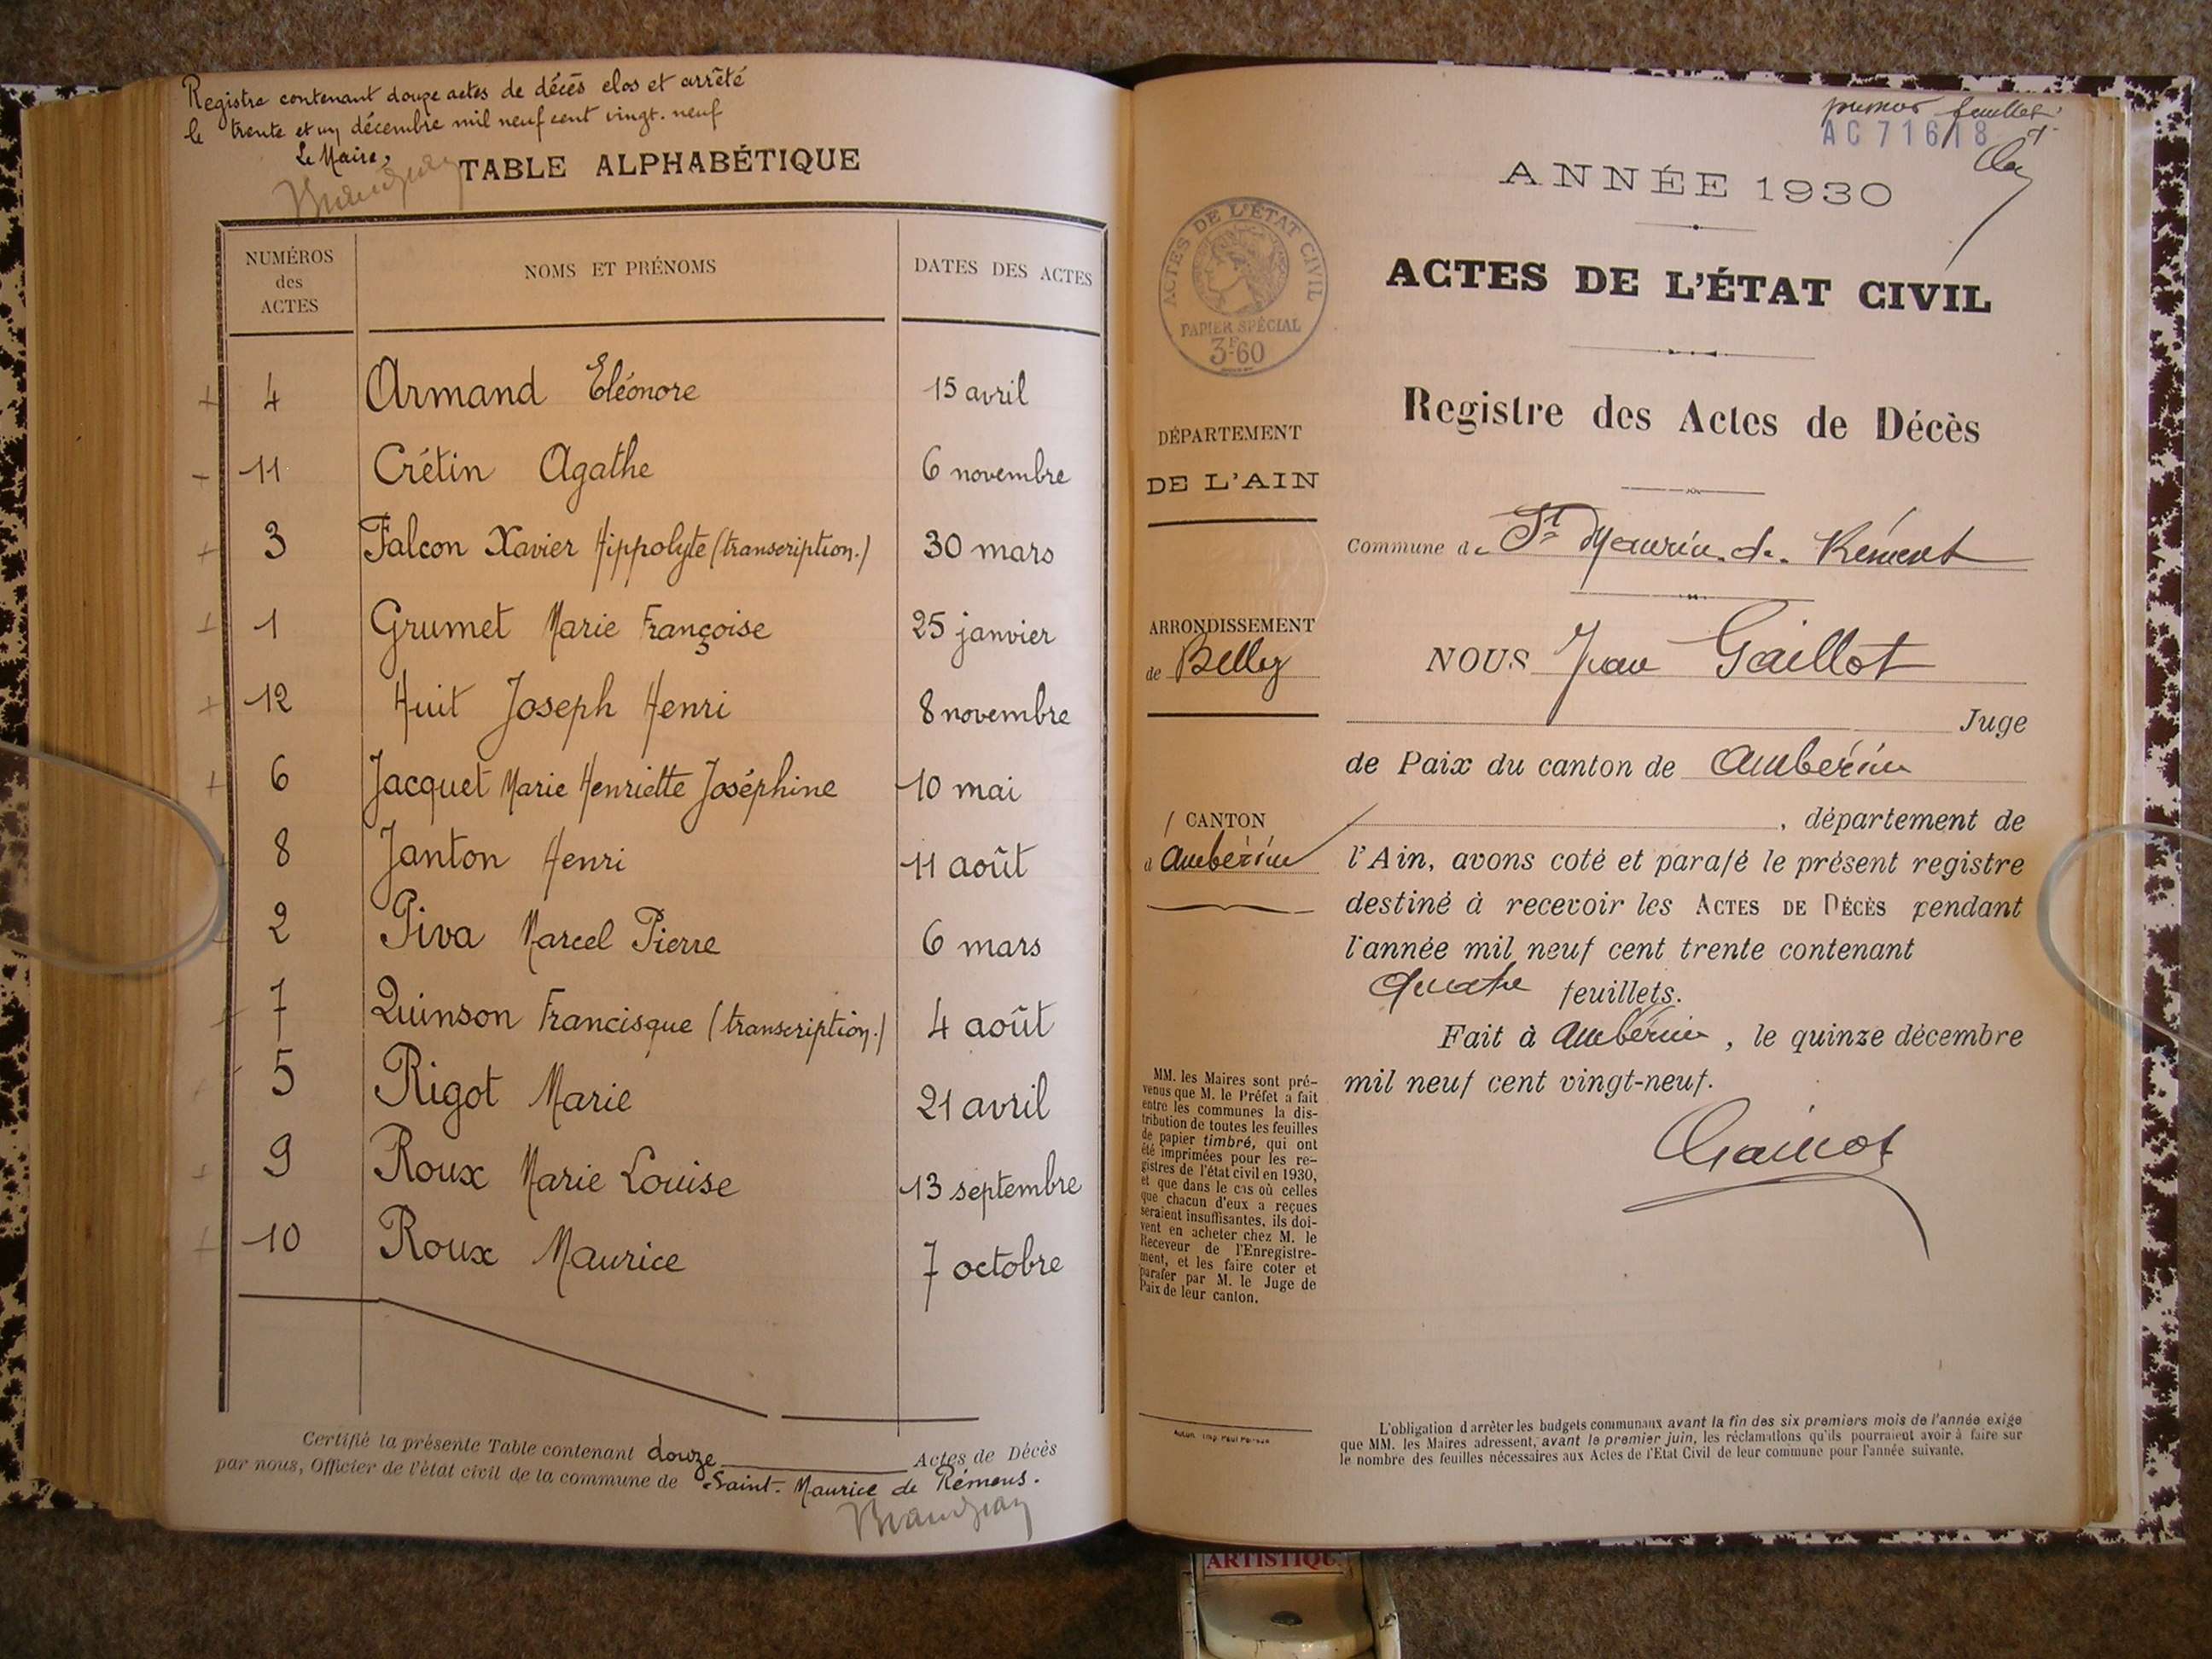 Registre contenant douze actes de décès clos et arrêté
le trente et un décembre mil neuf cent vingt-neuf
Le Maire,
TABLE ALPHABÉTIQUE
NUMÉROS des ACTES NOMS ET PRÉNOMS DATES DES ACTES
4 Armand Eléonore 15 avril
11 Crétin Agathe 6 novembre
3 Falcon Xavier Hippolyte (transcription.) 30 mars
1 Grumet Marie Françoise 25 janvier
12 Huit Joseph Henri 8 novembre
6 Jacquet Marie Henriette Joséphine 10 mai
8 Janton Henri 11 août
2 Piva Marcel Pierre 6 mars
7 Quinson Francisque (transcription.) 4 août
5 Rigot Marie 21 avril
9 Roux Marie Louise 13 septembre
10 Roux Maurice 7 octobre
Certifié la présente Table contenant douze Actes de Décès
par nous, Officier de l'état civil de la commune de Saint-Maurice de Rémens.
premier feuillet
AC 71618
ANNÉE 1930
ACTES DE L'ÉTAT CIVIL
PAPIER SPÉCIAL
3F60
ACTES DE L'ÉTAT CIVIL
Registre des Actes de Décès
DÉPARTEMENT
DE L'AIN
ARRONDISSEMENT
de Belley
CANTON
d'Ambérieu
MM. les Maires sont pré-
venus que M. le Préfet a fait
entre les communes la dis-
tribution de toutes les feuilles
de papier timbré, qui ont
été imprimées pour les re-
gistres de l'état civil en 1930,
et que dans le cas où celles
que chacun d'eux a reçues
seraient insuffisantes, ils doi-
vent en acheter chez M. le
Receveur de l'Enregistre-
ment, et les faire coter et
parafer par M. le Juge de
Paix de leur canton.
Commune de St Maurice de Rémens
NOUS Jean Gaillot
Juge
de Paix du canton de Ambérieu
, département de
l'Ain, avons coté et parafé le présent registre
destiné à recevoir les ACTES DE DÉCÈS pendant
l'année mil neuf cent trente contenant
quatre feuillets.
Fait à Ambérieu, le quinze décembre
mil neuf cent vingt-neuf.
Gaillot
L'obligation d'arrêter les budgets communaux avant la fin des six premiers mois de l'année exige
que MM. les Maires adressent, avant le premier juin, les réclamations qu'ils pourraient avoir à faire sur
le nombre des feuilles nécessaires aux Actes de l'Etat Civil de leur commune pour l'année suivante.
ARTISTIQU